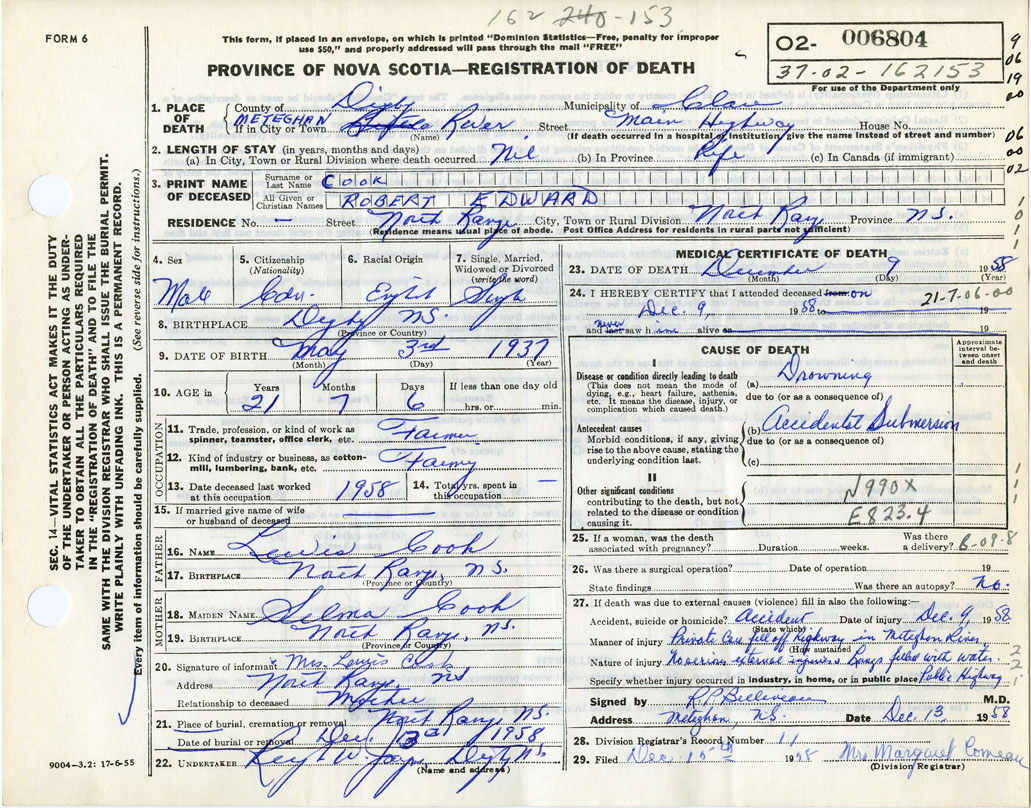 162 240-153
FORM 6
This form, if placed in an envelope, on which is printed "Dominion Statistics—Free, penalty for improper
use $50," and properly addressed will pass through the mail "FREE"
PROVINCE OF NOVA SCOTIA—REGISTRATION OF DEATH
02- 006804
37-02-162153
For use of the Department only
9
06
19
00
06
00
02
1. PLACE OF DEATH County of Digby Municipality of Clare
If in City or Town METEGHAN River Street Main Highway House No.
(Name) (If death occurred in a hospital or institution, give the name instead of street and number)
2. LENGTH OF STAY (in years, months and days)
(a) In City, Town or Rural Division where death occurred Nil (b) In Province Life (c) In Canada (if immigrant)
3. PRINT NAME OF DECEASED Surname or Last Name COOK
All Given or Christian Names ROBERT EDWARD
RESIDENCE No. — Street North Range City, Town or Rural Division North Range Province N.S.
(Residence means usual place of abode. Post Office Address for residents in rural parts not sufficient)
4. Sex Male
5. Citizenship (Nationality) Cdn.
6. Racial Origin English
7. Single, Married, Widowed or Divorced (write the word) Single
8. BIRTHPLACE Digby N.S.
(Province or Country)
9. DATE OF BIRTH May 3rd 1937
(Month) (Day) (Year)
10. AGE in Years 21 Months 7 Days 6 If less than one day old hrs. or min.
OCCUPATION
11. Trade, profession, or kind of work as spinner, teamster, office clerk, etc. Farmer
12. Kind of industry or business, as cotton-mill, lumbering, bank, etc. Farming
13. Date deceased last worked at this occupation 1958
14. Total yrs. spent in this occupation —
15. If married give name of wife or husband of deceased
FATHER
16. NAME Lewis Cook
17. BIRTHPLACE North Range, N.S.
(Province or Country)
MOTHER
18. MAIDEN NAME Selma Cook
19. BIRTHPLACE North Range, N.S.
(Province or Country)
20. Signature of informant Mrs. Lewis Cook
Address North Range, N.S.
Relationship to deceased Mother
21. Place of burial, cremation or removal North Range, N.S.
Date of burial or removal Dec. 1958
22. UNDERTAKER Digby N.S.
(Name and address)
9004—3.2: 17-6-55
SEC. 14—VITAL STATISTICS ACT MAKES IT THE DUTY
OF THE UNDERTAKER OR PERSON ACTING AS UNDER-
TAKER TO OBTAIN ALL THE PARTICULARS REQUIRED
IN THE "REGISTRATION OF DEATH" AND TO FILE THE
SAME WITH THE DIVISION REGISTRAR WHO SHALL ISSUE THE BURIAL PERMIT.
WRITE PLAINLY WITH UNFADING INK. THIS IS A PERMANENT RECORD.
Every item of information should be carefully supplied. (See reverse side for instructions.)
MEDICAL CERTIFICATE OF DEATH
23. DATE OF DEATH December 9 1958
(Month) (Day) (Year)
24. I HEREBY CERTIFY that I attended deceased from on 21-7-06-00
Dec. 9, 1958 to 19
and last never saw him alive on 19
CAUSE OF DEATH
Approximate interval between onset and death
I
Disease or condition directly leading to death
(This does not mean the mode of dying, e.g., heart failure, asthenia, etc. It means the disease, injury, or complication which caused death.)
(a) Drowning
due to (or as a consequence of)
Antecedent causes
Morbid conditions, if any, giving rise to the above cause, stating the underlying condition last.
(b) Accidental Submersion
due to (or as a consequence of)
(c)
II
Other significant conditions
contributing to the death, but not related to the disease or condition causing it.
N990X
E823.4
25. If a woman, was the death associated with pregnancy? Duration weeks. Was there a delivery? B-09-8
26. Was there a surgical operation? Date of operation 19
State findings Was there an autopsy? No.
27. If death was due to external causes (violence) fill in also the following:—
Accident, suicide or homicide? Accident Date of injury Dec. 9, 1958
(State which)
Manner of injury Private Car fell off highway in Meteghan River
(How sustained
Nature of injury external injuries Lungs filled with water.
Specify whether injury occurred in industry, in home, or in public place Public Highway
Signed by R.P. Belliveau M.D.
Address Meteghan, N.S. Date Dec. 13, 1958
28. Division Registrar's Record Number 11
29. Filed Dec. 15th 1958 Mrs Margaret Comeau
(Division Registrar)